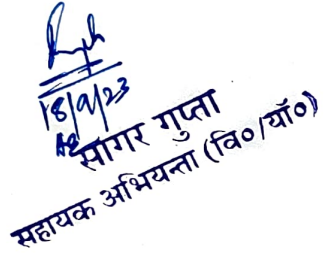 18/9/23
AE
सागर गुप्ता
सहायक अभियन्ता (वि०/यॉ०)